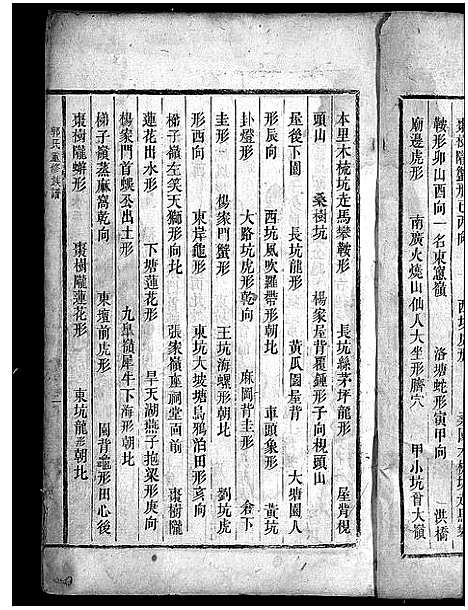 鞍形卯山西向一名東窻嶺　洛塘蛇形寅甲向　洪橋
廟邊虎形　南廣火燒山仙人大坐形臍穴　甲小坑首大嶺
本里木梳坑走馬攀鞍形　長坑絲茅坪龍形　屋背梘
頭山　桑樹坑　楊家屋背覆鍾形子向梘頭山
屋後下園　長坑龍形　黃瓜園屋背　大塘園人
形辰向　西坑風吹羅帶形朝北　車頭象形　黃坑
卦燈形　大路坑虎形乾向　麻岡背圭形　倉下
圭形　楊家門蟹形　王坑海螺形朝北　劉坑虎
形西向　東岸龜形　東坑大坡塘烏鴉泊田形亥向
梯子嶺左笑天獅形向北　張家嶺座祠堂面前　棗樹隴
蓮花出水形　下塘蓮花形　旱天湖燕子抱梁形庚向
楊家門首螟公出土形　九皐嶺犀牛下海形朝北
梯子嶺蒸麻窩乾向　東壇前虎形　園背龜形田心後
棗樹隴蠏形　棗樹隴蓮花形　東坑龍形朝北
郭氏重修族譜